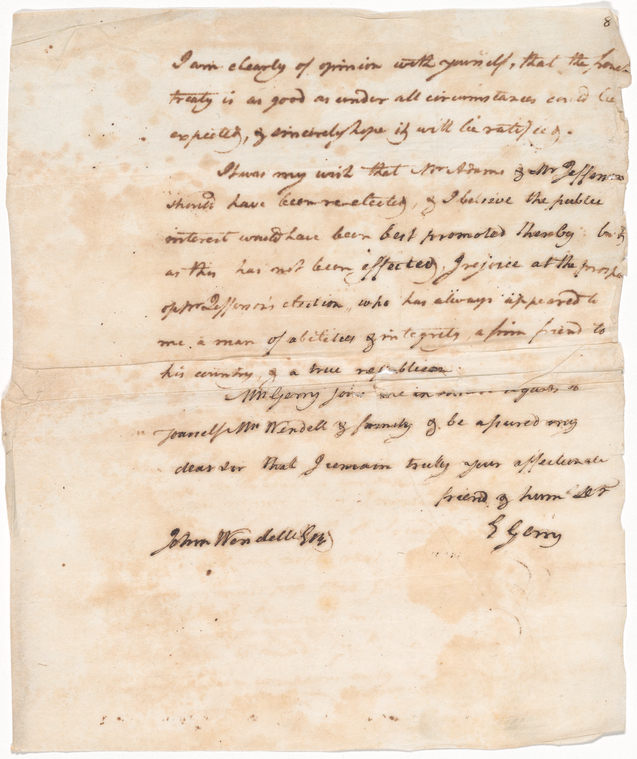 8
I am clearly of opinion with yourself, that the french
treaty is as good as under all circumstances could be
expected, & sincerely hope it will be ratified.
It was my wish that Mr Adams & Mr Jefferson
should have been re-elected, & I believe the public
interest would have been best promoted thereby but
as this has not been effected, I rejoice at the
of Mr Jefferson's election, who has always appeared to
me a man of abilities & integrity, a firm friend to
his country, & a true republican.
Mrs Gerry joins me in regards to
yourself Mrs Wendell & family & be assured my
dear sir that I remain truly your affectionate
friend & hum
E Gerry
John Wendell Esq